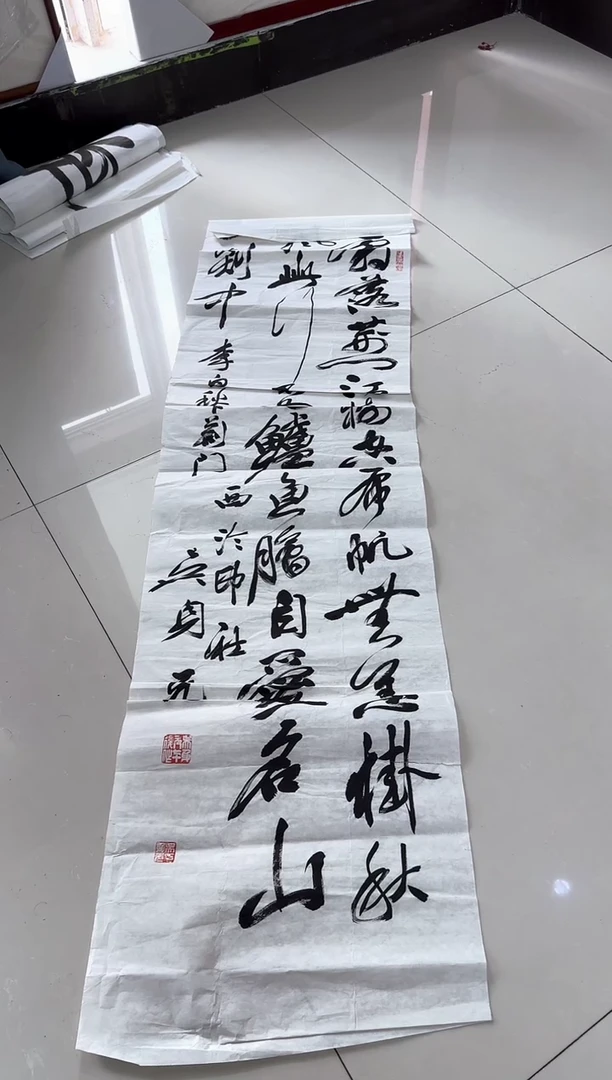 霜落荆门江树空布帆無恙掛秋
风此行不为鱸鱼膾自愛名山
入剡中 李白秋荆门
西泠印社
吴